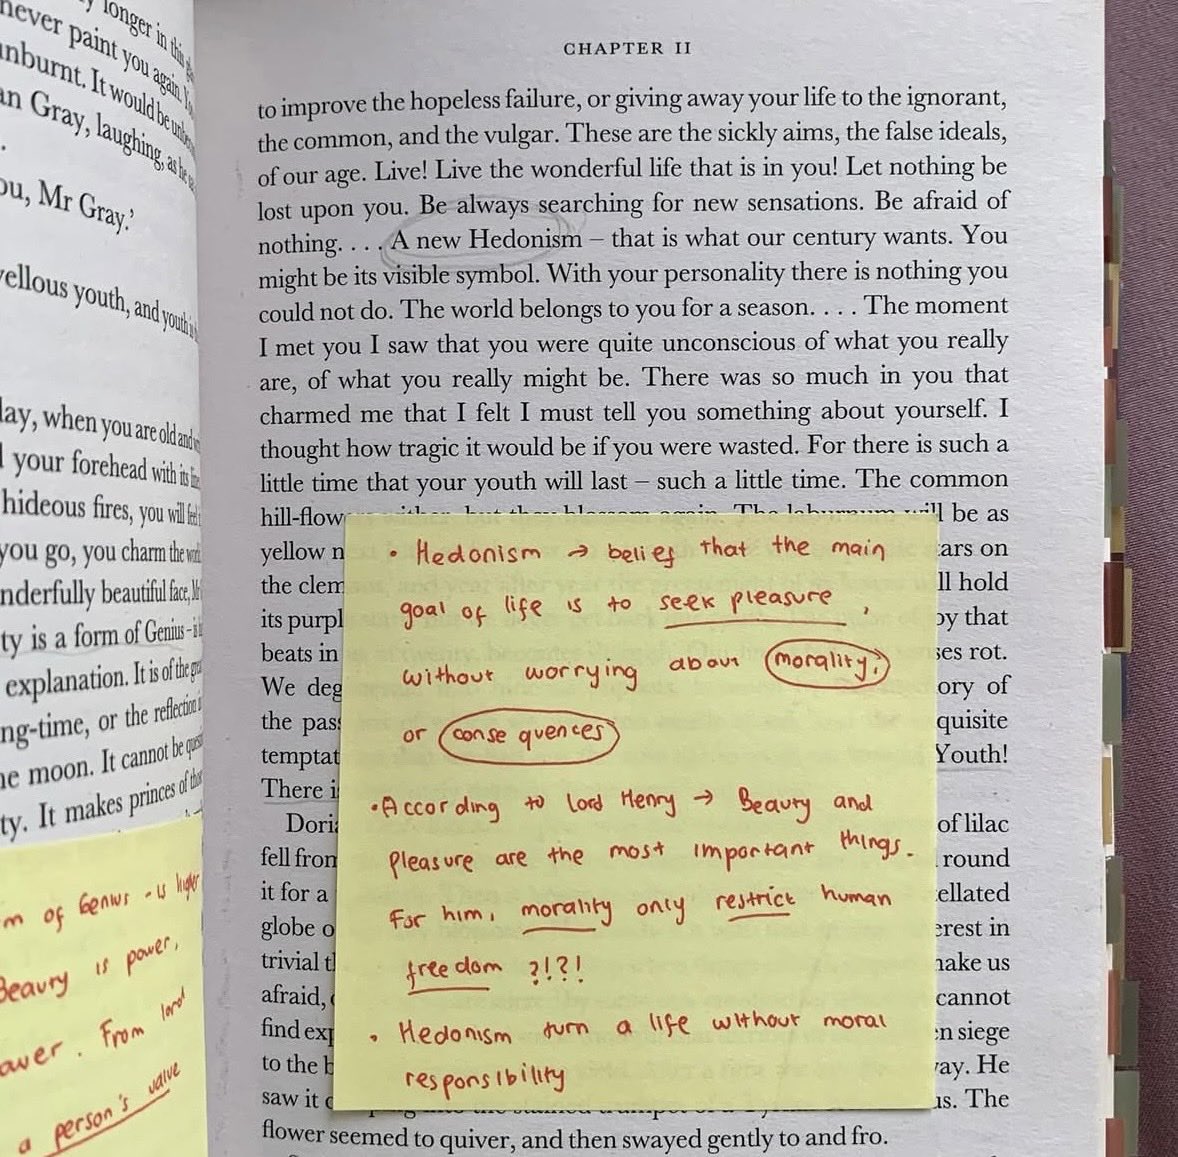 longer in this
never paint you again.
unburnt. It would be
an Gray, laughing, as he
ou, Mr Gray.'
vellous youth, and youth is
lay, when you are old and
l your forehead with its
hideous fires, you will feel
you go, you charm the
nderfully beautiful face, Mr
ty is a form of Genius – is
explanation. It is of the
ng-time, or the reflection
he moon. It cannot be
ty. It makes princes of
m of Genius - is higher
Beauty is power.
ower. From lord
a person's value
CHAPTER II
to improve the hopeless failure, or giving away your life to the ignorant,
the common, and the vulgar. These are the sickly aims, the false ideals,
of our age. Live! Live the wonderful life that is in you! Let nothing be
lost upon you. Be always searching for new sensations. Be afraid of
nothing. . . . A new Hedonism – that is what our century wants. You
might be its visible symbol. With your personality there is nothing you
could not do. The world belongs to you for a season. . . . The moment
I met you I saw that you were quite unconscious of what you really
are, of what you really might be. There was so much in you that
charmed me that I felt I must tell you something about yourself. I
thought how tragic it would be if you were wasted. For there is such a
little time that your youth will last – such a little time. The common
hill-flowers wither, but they blossom again. The laburnum will be as
yellow n ars on
the clem ll hold
its purpl by that
beats in ses rot.
We deg ory of
the pas quisite
temptat Youth!
There i
Dori of lilac
fell from round
it for a ellated
globe o erest in
trivial t make us
afraid, cannot
find exp n siege
to the b ay. He
saw it us. The
flower seemed to quiver, and then swayed gently to and fro.
• Hedonism → belief that the main
goal of life is to seek pleasure ,
without worrying about morality,
or consequences
• According to lord Henry → Beauty and
pleasure are the most important things.
For him, morality only restrict human
freedom ?!?!
• Hedonism turn a life without moral
responsibility